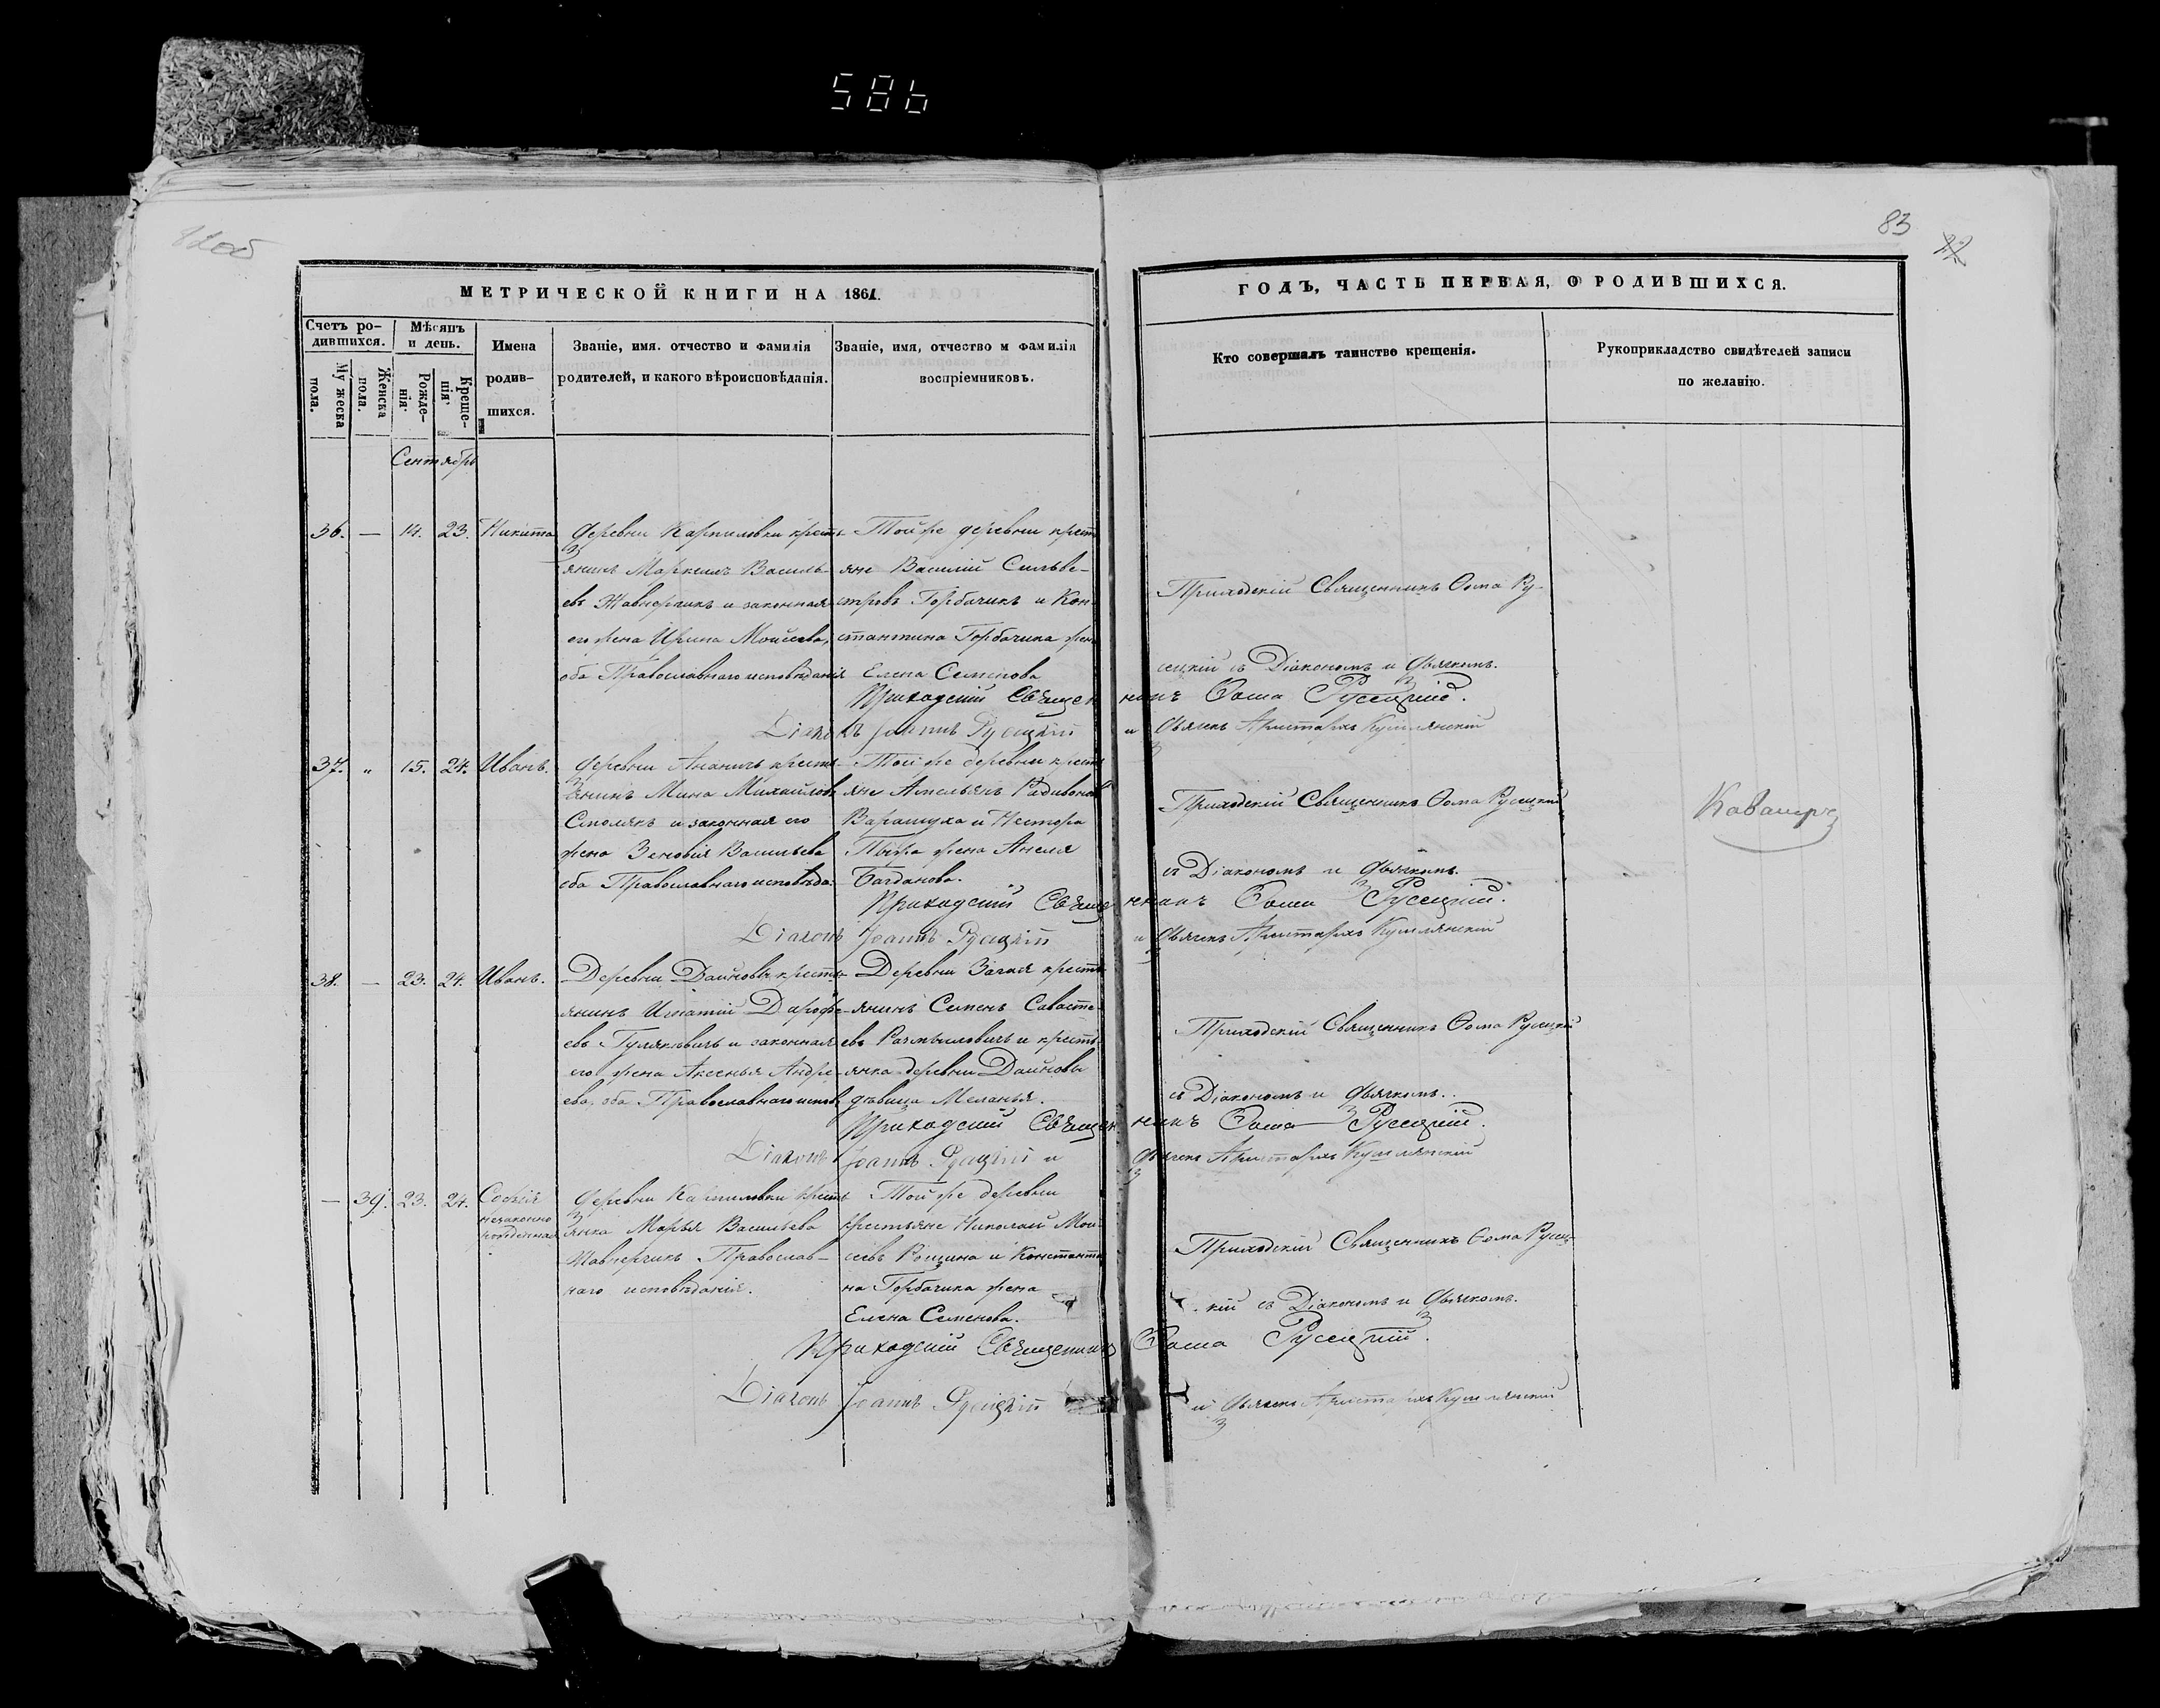 586
83
22
МЕТРИЧЕСКОЙ КНИГИ НА 1861.
ГОДЪ, ЧАСТЬ ПЕРВАЯ, О РОДИВШИХСЯ.
Счетъ ро-
дившихся.
Мѣсяцъ
и день.
Му жеска
пола.
Женска
пола.
Рожде-
нія.
Креще-
нія.
Имена
родив-
шихся.
Званіе, имя. отчество и фамилія
родителей, и какого вѣроисповѣданія.
Званіе, имя, отчество и фамилія
воспріемниковъ.
Кто совершалъ таинство крещенія.
Рукоприкладство свидѣтелей записи
по желанію.
Сентябрь
36. — 14. 23. Никита
Деревни Карпиловки кресть-
янинъ Маркелъ Василь-
евъ Жавнерчикъ и законная
его жена Ирина Моисеева,
оба Православнаго исповѣданія
Той же деревни кресть
яне Василій Сильве-
стровъ Горбачикъ и Кон-
стантина Горбачика жена
Елена Семенова
Приходскій Священникъ Ѳома Ру-
сецкій съ Діакономъ и Дьячкомъ.
Приходскій Священникъ Ѳома Русецкій.
Діаконъ Іоаннъ Русецкій и Дьячекъ Аристархъ
37. „ 15. 24. Иванъ.
Деревни кресть-
янинъ Мина Михайловъ
Столякъ и законная его
жена Зеновія Васильева
оба Православнаго исповѣда:
Той же деревни кресть
яне Амельянъ Радивоновъ
Варашуха и Нестора
жена Анеля
Багданова.
Приходскій Священникъ Ѳома Русецкій
съ Діакономъ и Дьячкомъ.
Приходскій Священникъ Ѳома Русецкій.
Діаконъ Іоаннъ Русецкій и Дьячекъ Аристархъ
38. — 23. 24. Иванъ.
Деревни Дайновы кресть-
янинъ Игнатій Дарофе-
евъ Гулякевичъ и законная
его жена Аксенья Андре-
ева, оба Православнаго испов.
Деревни кресть-
янинъ Семенъ Савасте-
евъ и кресть-
янка деревни Дайновы
дѣвица Меланья.
Приходскій Священникъ Ѳома Русецкій
съ Діакономъ и Дьячкомъ.
Приходскій Священникъ Ѳома Русецкій.
Діаконъ Іоаннъ Русецкій и Дьячекъ Аристархъ
— 39. 23. 24. Софія
незаконно
рожденная
Деревни Карпиловки кресть
янка Марья Васильева
Жавнерчикъ Православ-
наго исповѣданія.
Той же деревни
крестьяне Николай Мои-
сеевъ Рощина и Константи
на Горбачика жена
Елена Семенова.
Приходскій Священникъ Ѳома Русец-
кій съ Діакономъ и Дьячкомъ.
Приходскій Священникъ Ѳома Русецкій.
Діаконъ Іоаннъ Русецкій и Дьячекъ Аристархъ